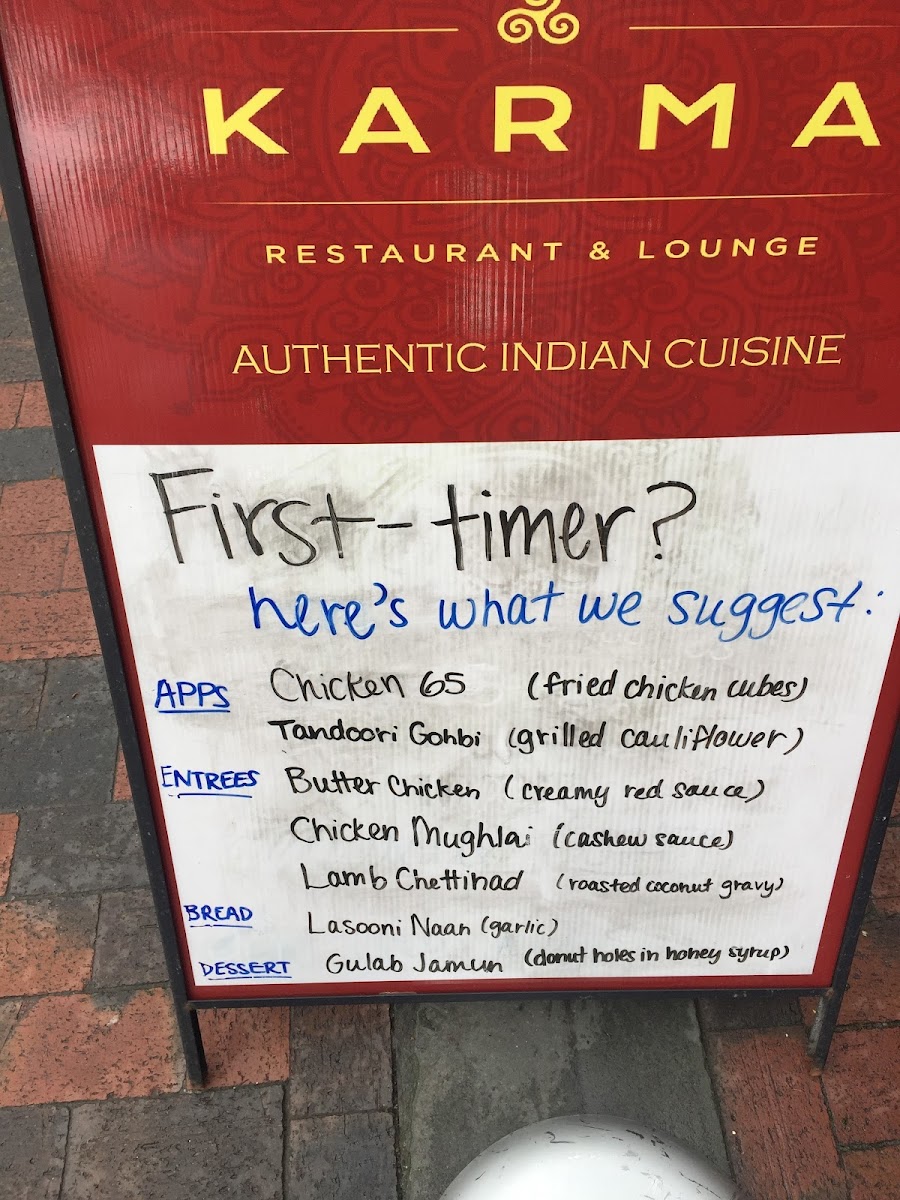 KARMA
RESTAURANT & LOUNGE
AUTHENTIC INDIAN CUISINE
First-timer?
here's what we suggest:
APPS Chicken 65 (fried chicken cubes)
Tandoori Gohbi (grilled cauliflower)
ENTREES Butter Chicken (creamy red sauce)
Chicken Mughlai (cashew sauce)
Lamb Chettinad (roasted coconut gravy)
BREAD Lasooni Naan (garlic)
DESSERT Gulab Jamun (donut holes in honey syrup)